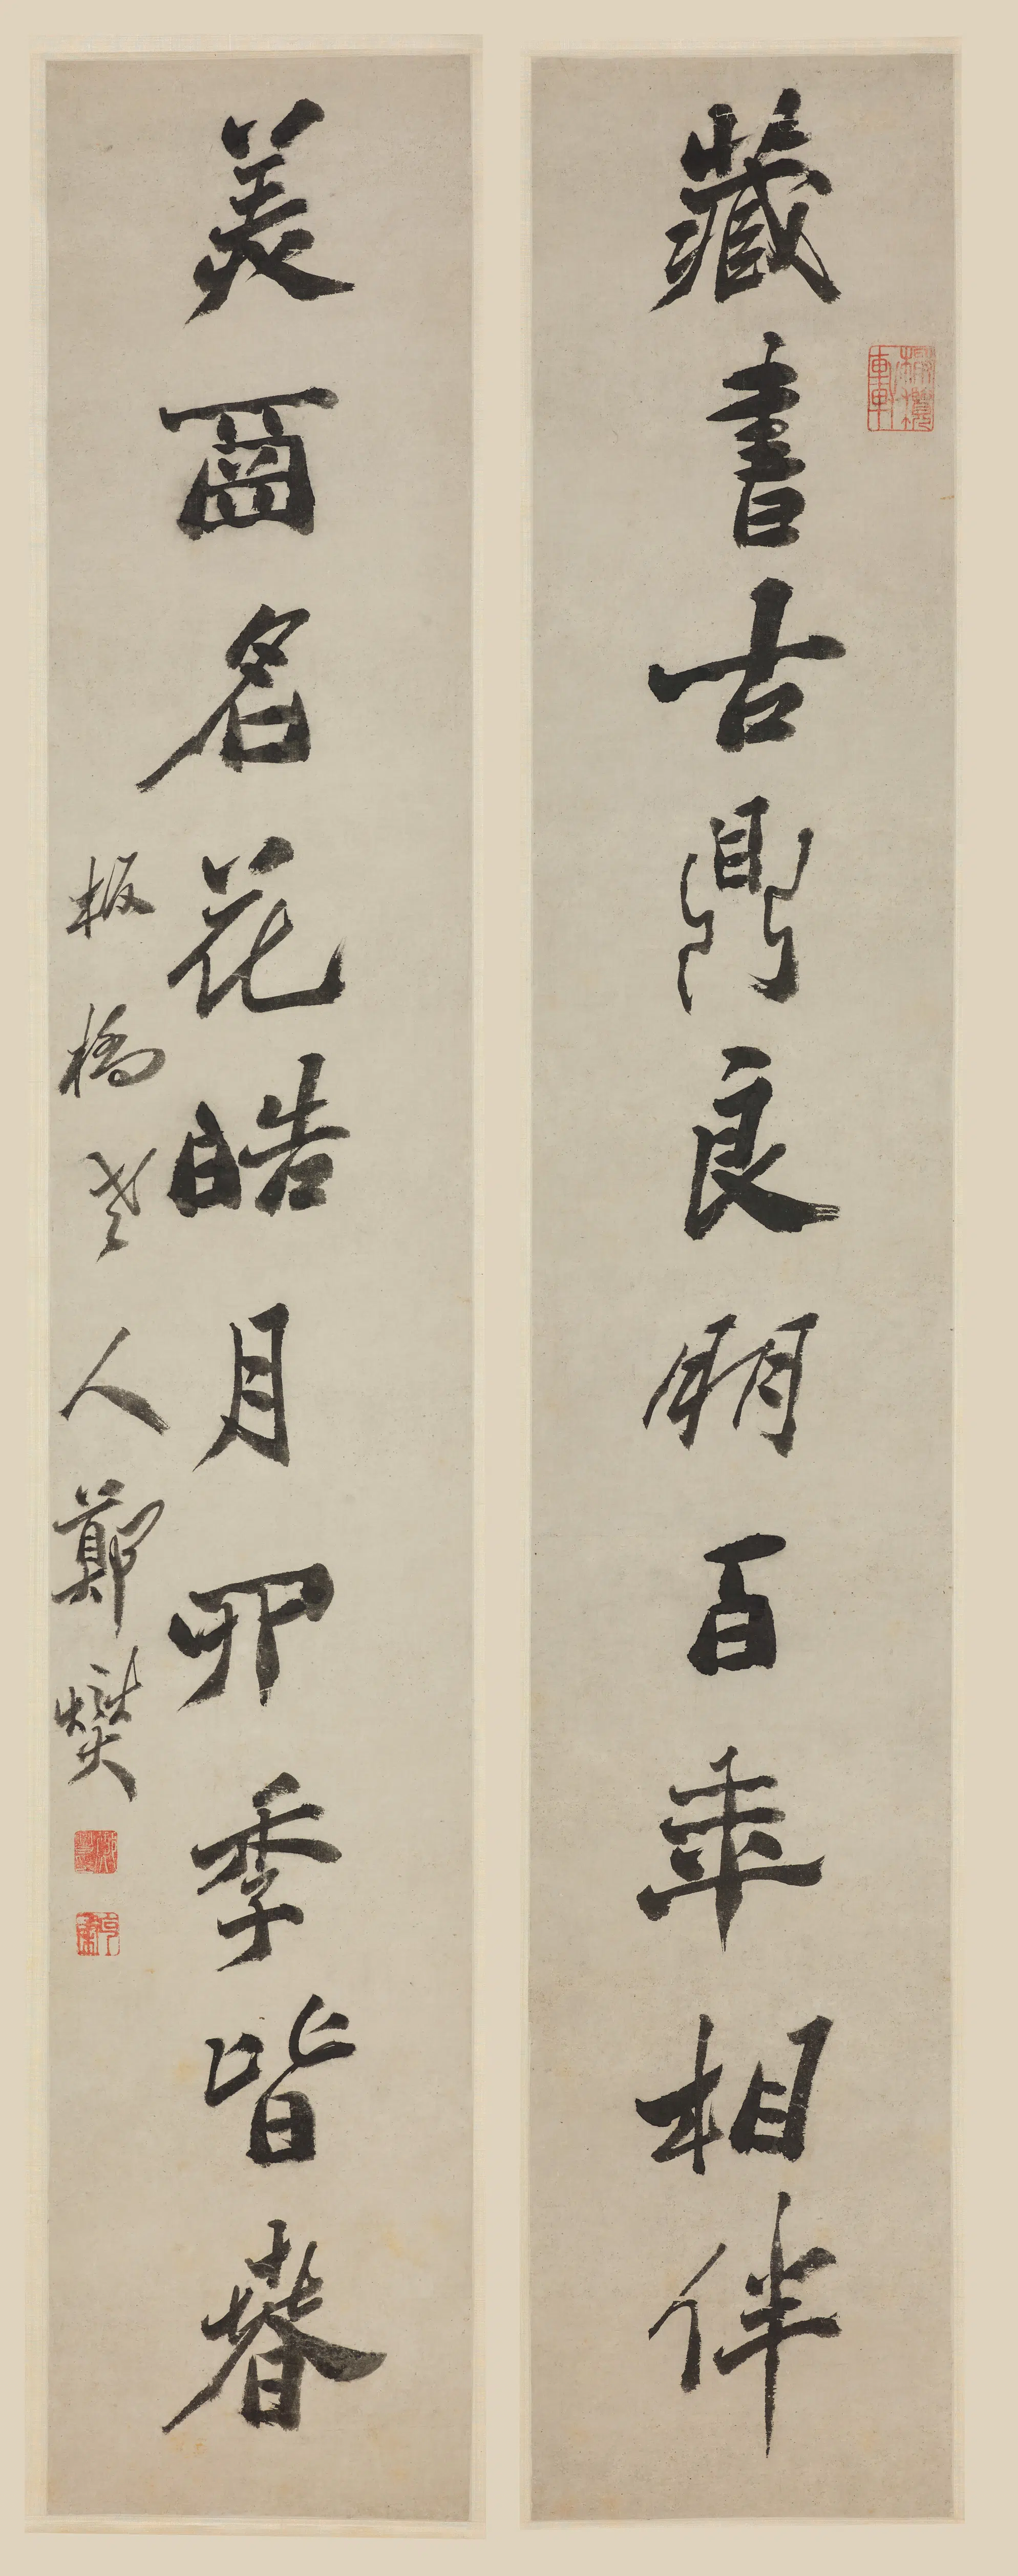 橄欖軒
藏書古鼎良朋百年相伴
美名花皓月四季皆春
板橋老人鄭燮